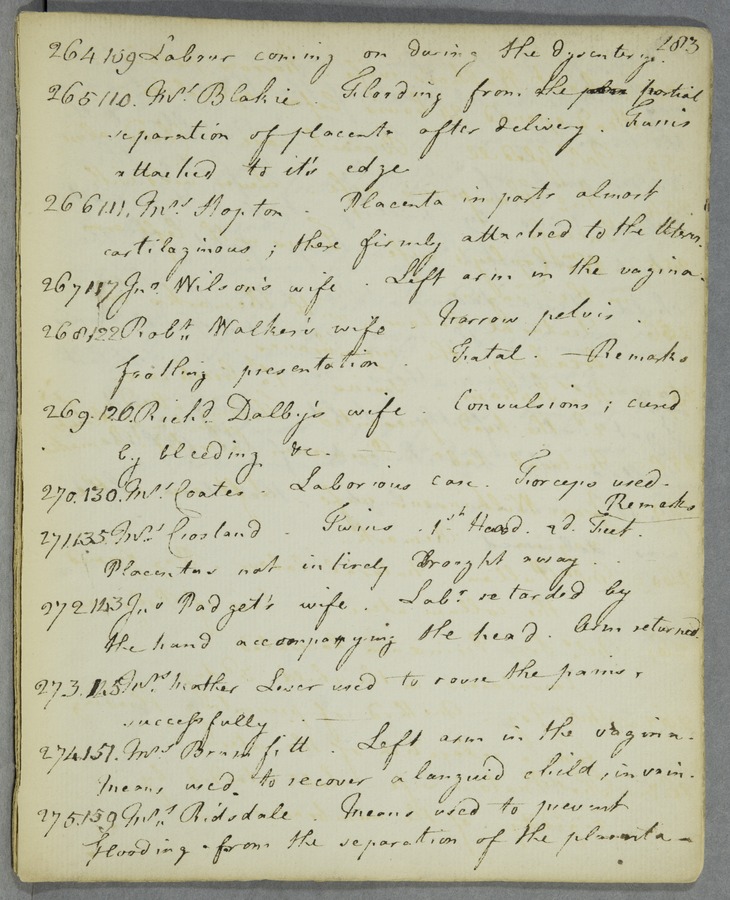 283
264 109 Labour coming on during the dysentery.
265 110. Mrs Blakie. Flooding from the partial
separation of placenta after delivery. Funis
attached to it's edge
266 111. Mrs Hopton. Placenta in parts almost
cartilaginous; there firmly attached to the Uterus.
267 117 Jno. Wilson's wife. Left arm in the vagina.
268, 122 Robt. Walker's wife. Narrow pelvis.
presentation. Fatal. — Remarks
269. 126. Richd. Dalby's wife. Convulsions; cured
by bleeding &c. —
270. 130. Mrs Coates. Laborious case. Forceps used.
Remarks
271 135 Mrs Crosland. Twins. 1st Head. 2d. Feet.
Placentas not intirely Brought away.
272 143 Jno Padget's wife. Labr. retarded by
the hand accompanying the head. Arm returned.
273. 145 Mrs Mather Lever used to rouse the pains,
successfully. —
274. 151. Mrs Brumfitt. Left arm in the vagina.
Means used to recover a languid child, in vain.
275. 159 Mrs. Ridsdale. Means used to prevent
Flooding from the separation of the placenta —